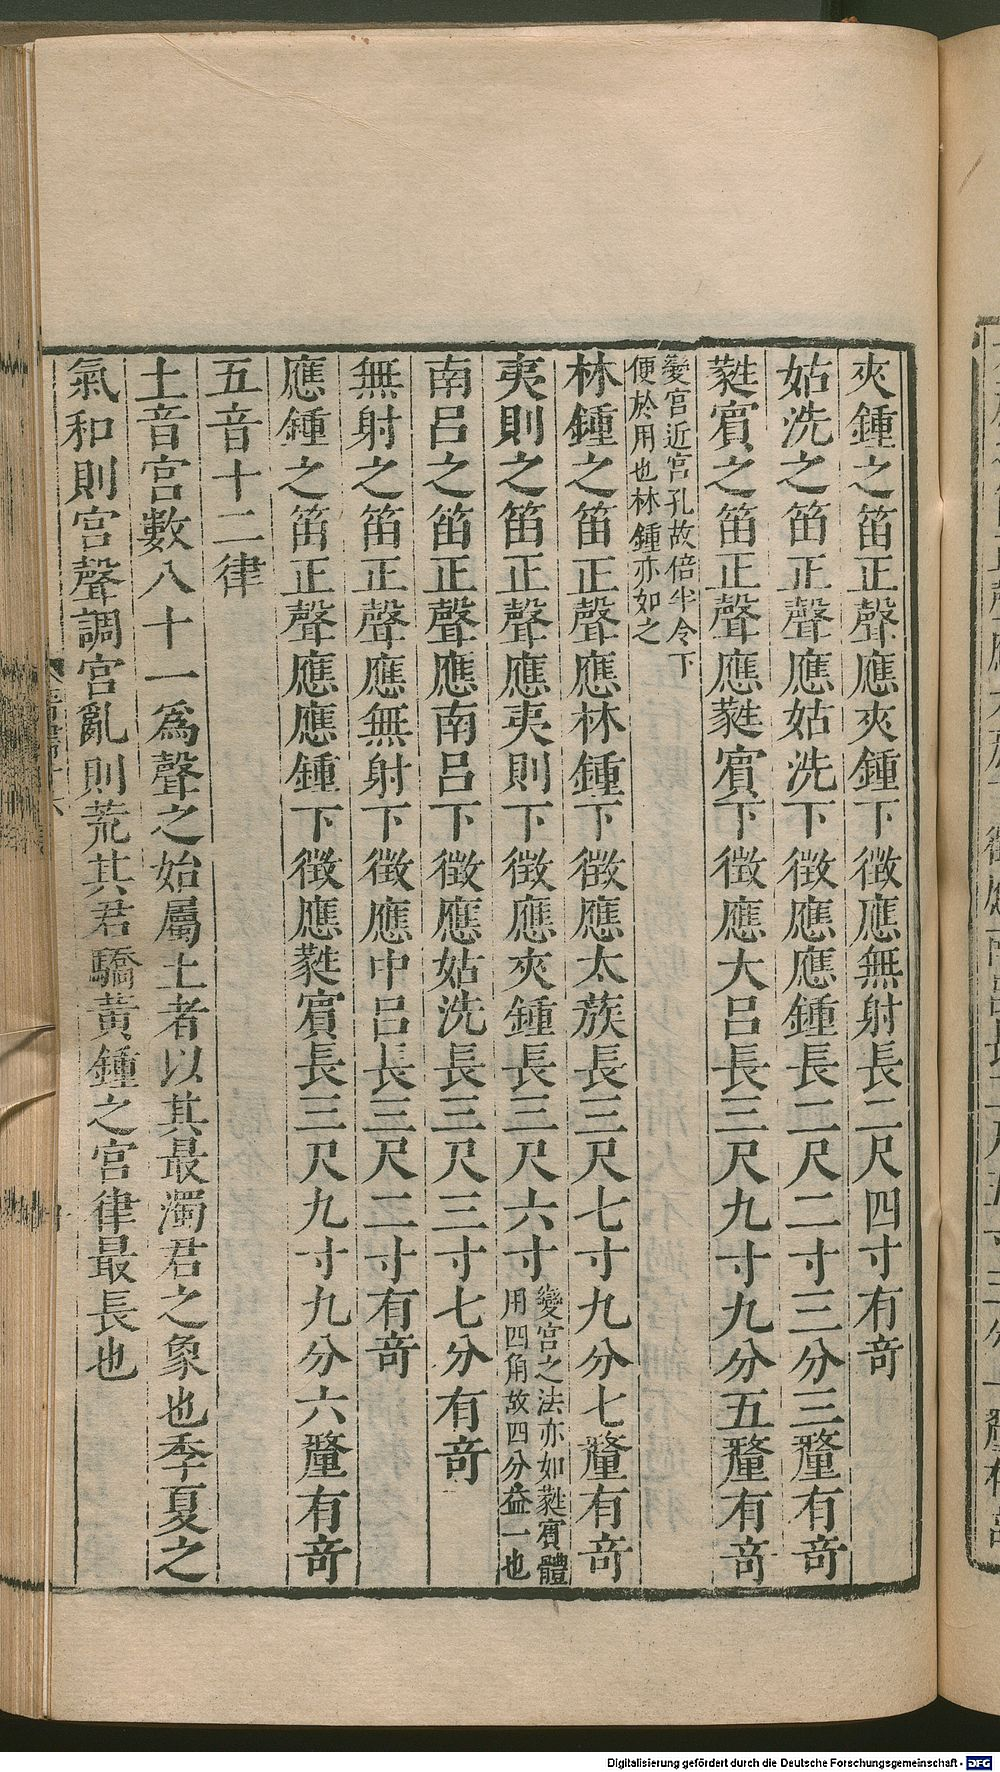 夾鍾之笛正聲應夾鍾下徵應無射長二尺四寸有竒
姑洗之笛正聲應姑洗下徵應應鍾長二尺二寸三分三釐有竒
蕤賓之笛正聲應蕤賓下徵應大呂長三尺九寸九分五釐有竒
變宮近宮孔故倍半令下
便於用也林鍾亦如之
林鍾之笛正聲應林鍾下徵應太蔟長三尺七寸九分七釐有竒
夷則之笛正聲應夷則下徵應夾鍾長三尺六寸
變宮之法亦如蕤賓體
用四角故四分益一也
南呂之笛正聲應南呂下徵應姑洗長三尺三寸七分有竒
無射之笛正聲應無射下徵應中呂長三尺二寸有竒
應鍾之笛正聲應應鍾下徵應蕤賓長三尺九寸九分六釐有竒
五音十二律
土音宮數八十一爲聲之始屬土者以其最濁君之象也季夏之
氣和則宮聲調宮亂則荒其君驕黃鍾之宮律最長也
Digitalisierung gefördert durch die Deutsche Forschungsgemeinschaft - DFG